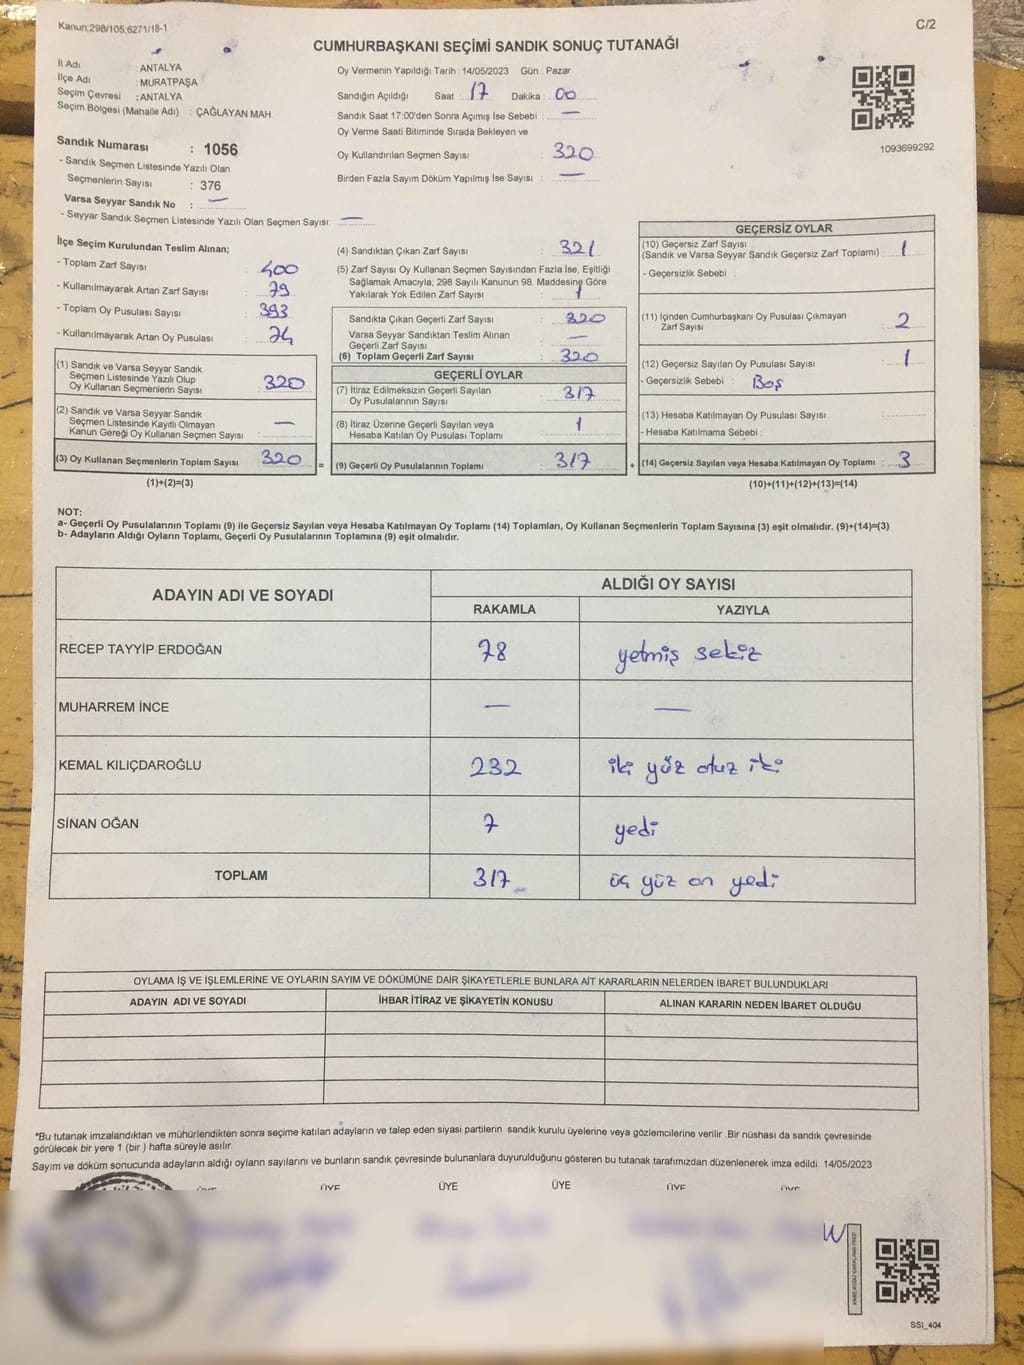 Kanun;298/105;6271/18-1
C/2
CUMHURBAŞKANI SEÇİMİ SANDIK SONUÇ TUTANAĞI
İl Adı : ANTALYA
İlçe Adı : MURATPAŞA
Seçim Çevresi : ANTALYA
Seçim Bölgesi (Mahalle Adı) : ÇAĞLAYAN MAH
Sandık Numarası : 1056
- Sandık Seçmen Listesinde Yazılı Olan
Seçmenlerin Sayısı : 376
Varsa Seyyar Sandık No : —
- Seyyar Sandık Seçmen Listesinde Yazılı Olan Seçmen Sayısı: —
Oy Vermenin Yapıldığı Tarih : 14/05/2023 Gün : Pazar
Sandığın Açıldığı Saat : 17 Dakika : 00
Sandık Saat 17:00'den Sonra Açımış İse Sebebi : —
Oy Verme Saati Bitiminde Sırada Bekleyen ve
Oy Kullandırılan Seçmen Sayısı : 320
Birden Fazla Sayım Döküm Yapılmış İse Sayısı : —
1093699292
İlçe Seçim Kurulundan Teslim Alınan;
- Toplam Zarf Sayısı : 400
- Kullanılmayarak Artan Zarf Sayısı : 79
- Toplam Oy Pusulası Sayısı : 393
- Kullanılmayarak Artan Oy Pusulası : 74
(1) Sandık ve Varsa Seyyar Sandık
Seçmen Listesinde Yazılı Olup
Oy Kullanan Seçmenlerin Sayısı : 320
(2) Sandık ve Varsa Seyyar Sandık
Seçmen Listesinde Kayıtlı Olmayan
Kanun Gereği Oy Kullanan Seçmen Sayısı : —
(3) Oy Kullanan Seçmenlerin Toplam Sayısı : 320 =
(1)+(2)=(3)
(4) Sandıktan Çıkan Zarf Sayısı : 321
(5) Zarf Sayısı Oy Kullanan Seçmen Sayısından Fazla İse, Eşitliği
Sağlamak Amacıyla; 298 Sayılı Kanunun 98. Maddesine Göre
Yakılarak Yok Edilen Zarf Sayısı : 1
Sandıkta Çıkan Geçerli Zarf Sayısı : 320
Varsa Seyyar Sandıktan Teslim Alınan
Geçerli Zarf Sayısı : —
(6) Toplam Geçerli Zarf Sayısı : 320
GEÇERLİ OYLAR
(7) İtiraz Edilmeksizin Geçerli Sayılan
Oy Pusulalarının Sayısı : 317
(8) İtiraz Üzerine Geçerli Sayılan veya
Hesaba Katılan Oy Pusulası Toplamı : 1
(9) Geçerli Oy Pusulalarının Toplamı : 317 +
GEÇERSİZ OYLAR
(10) Geçersiz Zarf Sayısı
(Sandık ve Varsa Seyyar Sandık Geçersiz Zarf Toplamı) : 1
- Geçersizlik Sebebi :
(11) İçinden Cumhurbaşkanı Oy Pusulası Çıkmayan
Zarf Sayısı : 2
(12) Geçersiz Sayılan Oy Pusulası Sayısı : 1
- Geçersizlik Sebebi : Boş
(13) Hesaba Katılmayan Oy Pusulası Sayısı :
- Hesaba Katılmama Sebebi :
(14) Geçersiz Sayılan veya Hesaba Katılmayan Oy Toplamı : 3
(10)+(11)+(12)+(13)=(14)
NOT:
a- Geçerli Oy Pusulalarının Toplamı (9) ile Geçersiz Sayılan veya Hesaba Katılmayan Oy Toplamı (14) Toplamları, Oy Kullanan Seçmenlerin Toplam Sayısına (3) eşit olmalıdır. (9)+(14)=(3)
b- Adayların Aldığı Oyların Toplamı, Geçerli Oy Pusulalarının Toplamına (9) eşit olmalıdır.
ADAYIN ADI VE SOYADI
ALDIĞI OY SAYISI
RAKAMLA YAZIYLA
RECEP TAYYİP ERDOĞAN 78 yetmiş sekiz
MUHARREM İNCE — —
KEMAL KILIÇDAROĞLU 232 iki yüz otuz iki
SİNAN OĞAN 7 yedi
TOPLAM 317 üç yüz on yedi
OYLAMA İŞ VE İŞLEMLERİNE VE OYLARIN SAYIM VE DÖKÜMÜNE DAİR ŞİKAYETLERLE BUNLARA AİT KARARLARIN NELERDEN İBARET BULUNDUKLARI
ADAYIN ADI VE SOYADI İHBAR İTİRAZ VE ŞİKAYETİN KONUSU ALINAN KARARIN NEDEN İBARET OLDUĞU
*Bu tutanak imzalandıktan ve mühürlendikten sonra seçime katılan adayların ve talep eden siyasi partilerin sandık kurulu üyelerine veya gözlemcilerine verilir .Bir nüshası da sandık çevresinde
görülecek bir yere 1 (bir ) hafta süreyle asılır.
Sayım ve döküm sonucunda adayların aldığı oyların sayılarını ve bunların sandık çevresinde bulunanlara duyurulduğunu gösteren bu tutanak tarafımızdan düzenlenerek imza edildi. 14/05/2023
ÜYE ÜYE ÜYE ÜYE ÜYE ÜYE
SSI_404